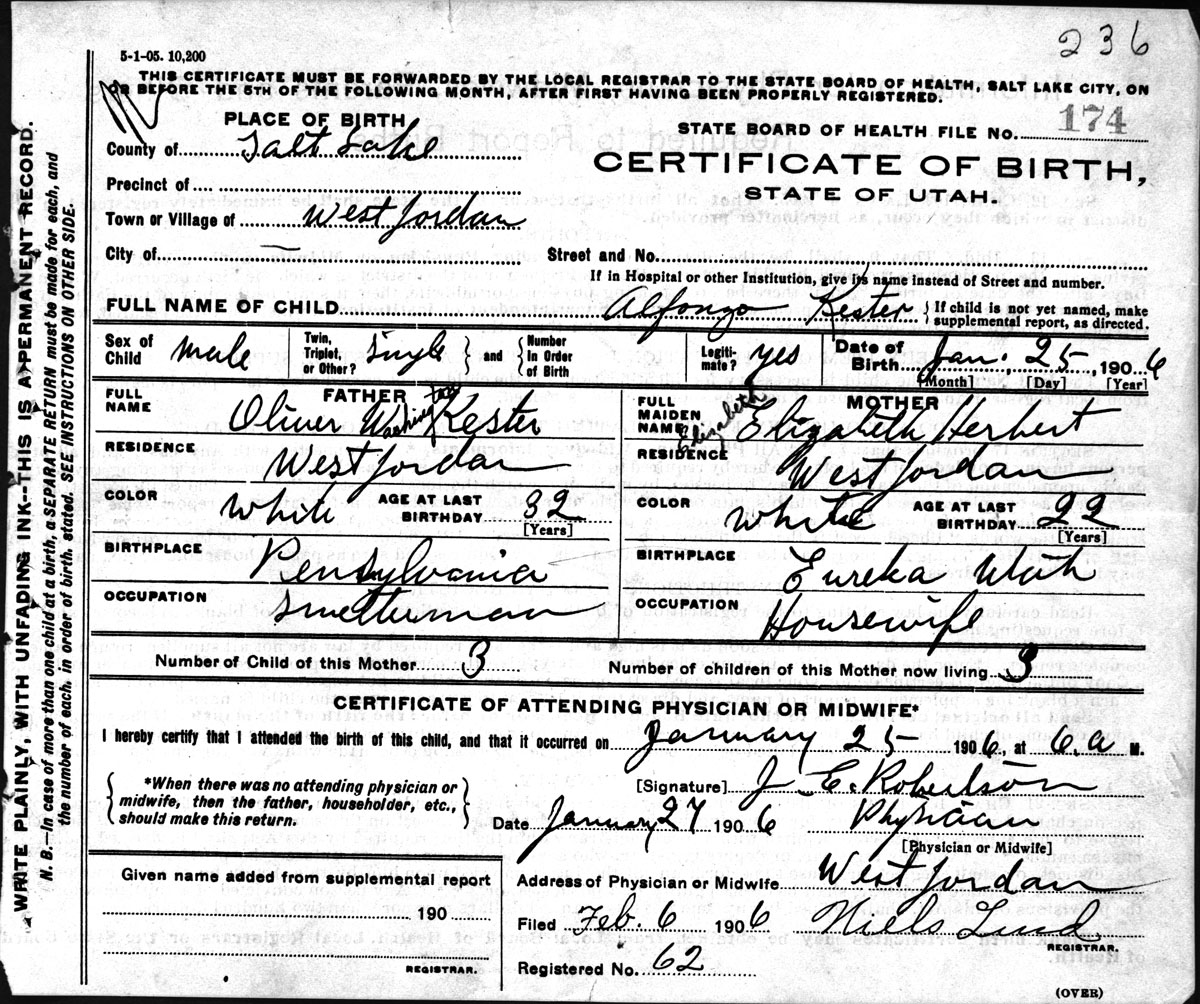 236
5-1-05. 10,200
THIS CERTIFICATE MUST BE FORWARDED BY THE LOCAL REGISTRAR TO THE STATE BOARD OF HEALTH, SALT LAKE CITY, ON
OR BEFORE THE 5TH OF THE FOLLOWING MONTH, AFTER FIRST HAVING BEEN PROPERLY REGISTERED.
PLACE OF BIRTH
STATE BOARD OF HEALTH FILE No. 174
County of Salt Lake
CERTIFICATE OF BIRTH,
STATE OF UTAH.
Precinct of
Town or Village of West Jordan
City of — Street and No.
If in Hospital or other Institution, give its name instead of Street and number.
FULL NAME OF CHILD Alfonzo Kester } If child is not yet named, make
supplemental report, as directed.
Sex of Child male Twin, Triplet, or Other? Single } and { Number in Order of Birth Legiti-mate? yes Date of Birth Jan. 25, 1906
[Month] [Day] [Year]
FATHER
FULL NAME Oliver Washington Kester
RESIDENCE West Jordan
COLOR White AGE AT LAST BIRTHDAY 32 [Years]
BIRTHPLACE Pensylvania
OCCUPATION Smelterman
MOTHER
FULL MAIDEN NAME Elizabeth Elizabeth Herbert
RESIDENCE West Jordan
COLOR White AGE AT LAST BIRTHDAY 22 [Years]
BIRTHPLACE Eureka Utah
OCCUPATION Housewife
Number of Child of this Mother 3 Number of children of this Mother now living 3
CERTIFICATE OF ATTENDING PHYSICIAN OR MIDWIFE*
I hereby certify that I attended the birth of this child, and that it occurred on January 25 1906, at 6.a M.
{ *When there was no attending physician or
midwife, then the father, householder, etc.,
should make this return. }
[Signature] J. E. Robertson
Date January 27 1906 Physician
[Physician or Midwife]
Given name added from supplemental report
190
REGISTRAR.
Address of Physician or Midwife West Jordan
Filed Feb. 6 1906 Niels Lind
REGISTRAR.
Registered No. 62
(OVER)
WRITE PLAINLY, WITH UNFADING INK--THIS IS A PERMANENT RECORD.
N. B.—In case of more than one child at a birth, a SEPARATE RETURN must be made for each, and
the number of each, in order of birth, stated. SEE INSTRUCTIONS ON OTHER SIDE.